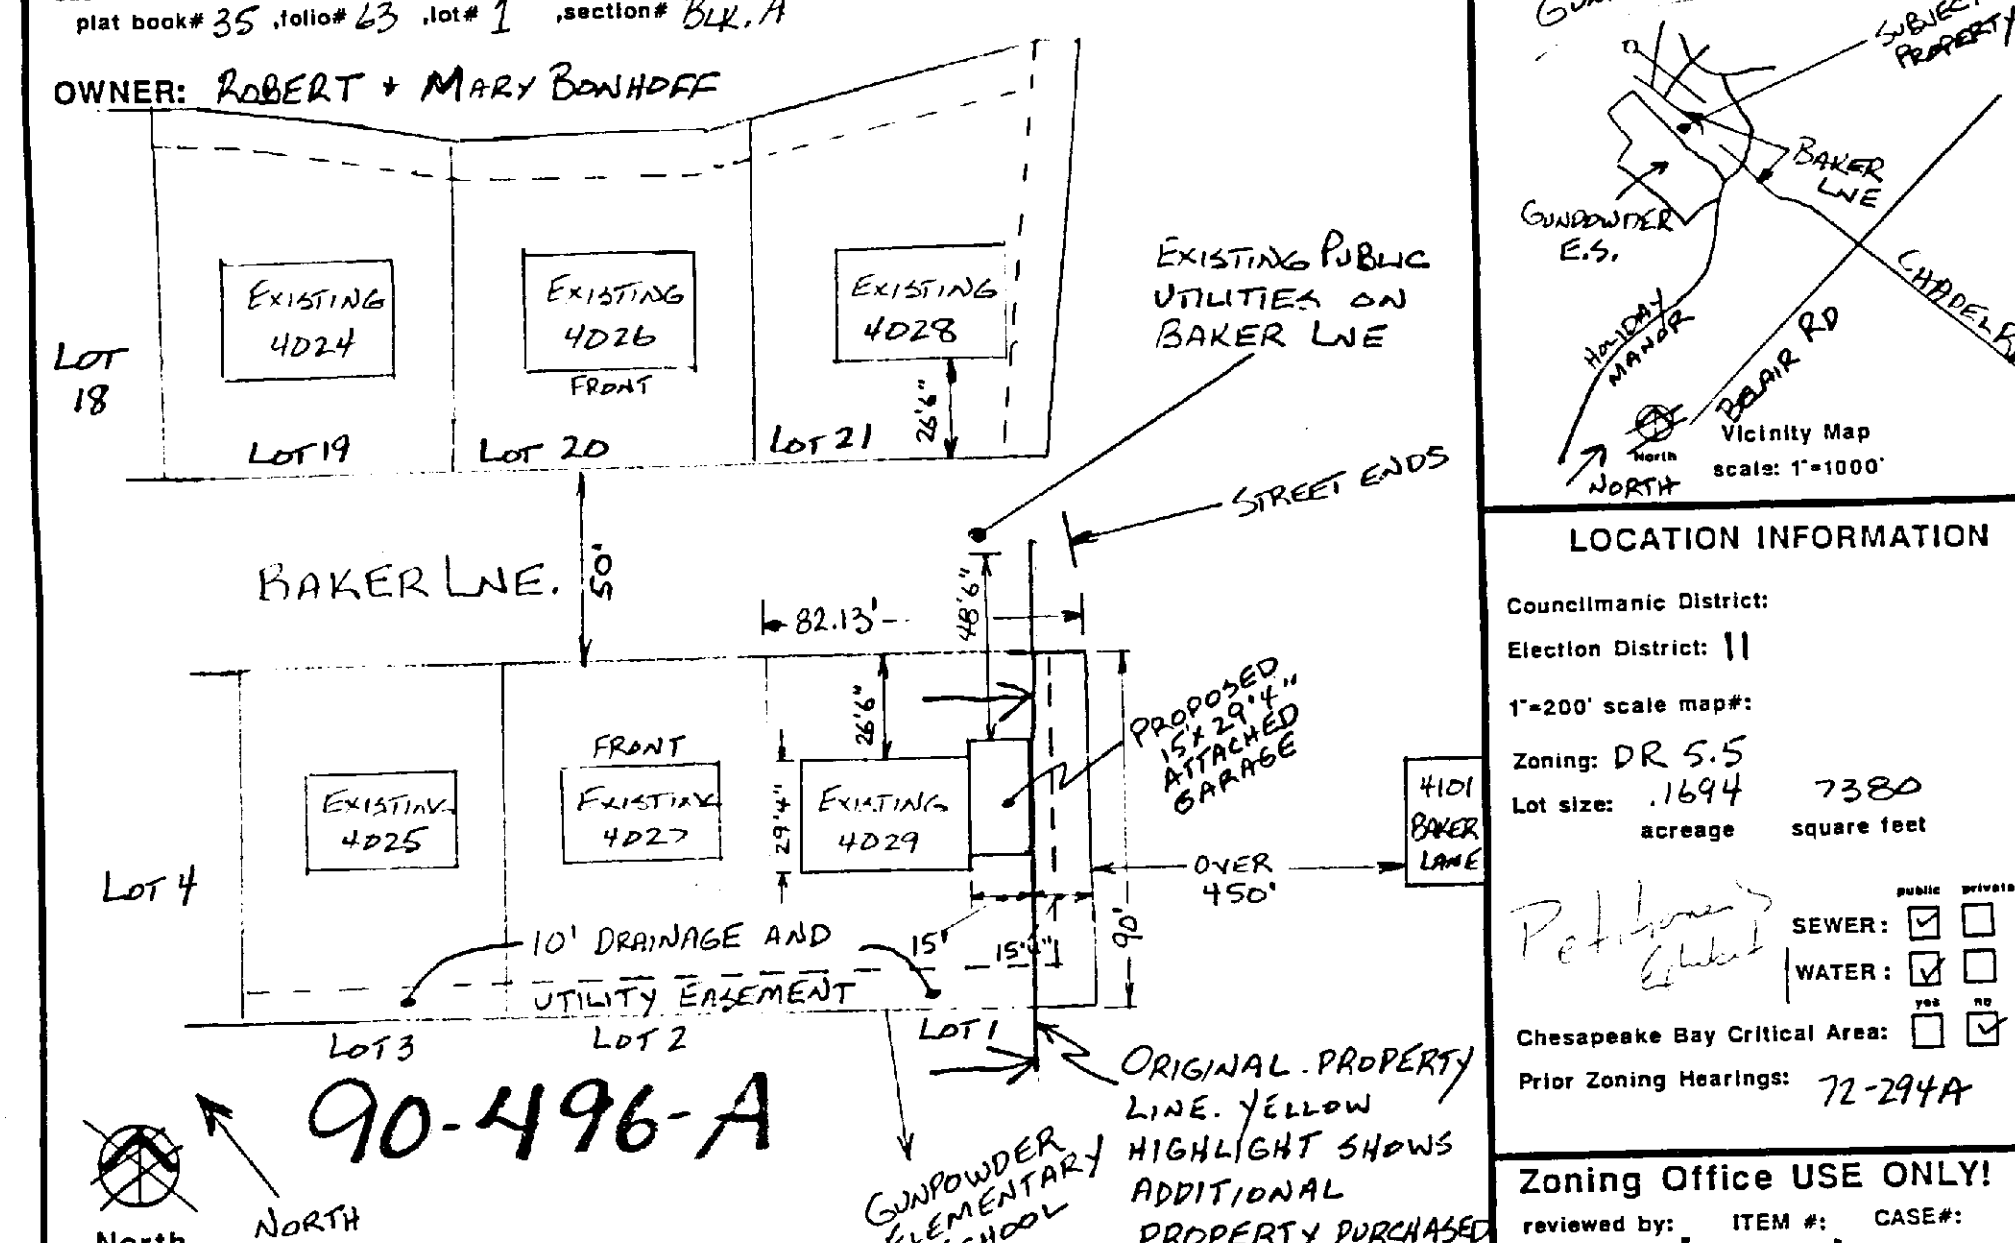 plat book# 35 ,folio# 63 ,lot# 1 ,section# BLK. A
OWNER: ROBERT + MARY BONHOFF
EXISTING
4024
EXISTING
4026
FRONT
EXISTING
4028
26'6"
LOT
18
LOT 19
LOT 20
LOT 21
EXISTING PUBLIC
UTILITIES ON
BAKER LNE
STREET ENDS
BAKER LNE.
50'
82.13'
48'6"
26'6"
PROPOSED
15' X 29'4"
ATTACHED
GARAGE
FRONT
EXISTING
4025
EXISTING
4027
29'4"
EXISTING
4029
4101
BAKER
LANE
OVER
450'
90'
LOT 4
10' DRAINAGE AND
UTILITY EASEMENT
15'
LOT 3
LOT 2
LOT 1
90-496-A
North
NORTH
GUNPOWDER
ELEMENTARY
SCHOOL
ORIGINAL PROPERTY
LINE. YELLOW
HIGHLIGHT SHOWS
ADDITIONAL
PROPERTY PURCHASED
SUBJECT
PROPERTY
BAKER
LNE
GUNPOWDER
E.S.
HOLIDAY
MANOR
BELAIR RD
CHAPEL
North
NORTH
Vicinity Map
scale: 1"=1000'
LOCATION INFORMATION
Councilmanic District:
Election District: 11
1"=200' scale map#:
Zoning: DR 5.5
Lot size: .1694 7380
acreage square feet
Petitioner's
public private
SEWER:
WATER:
yes no
Chesapeake Bay Critical Area:
Prior Zoning Hearings: 72-294A
Zoning Office USE ONLY!
reviewed by: ITEM #: CASE#: